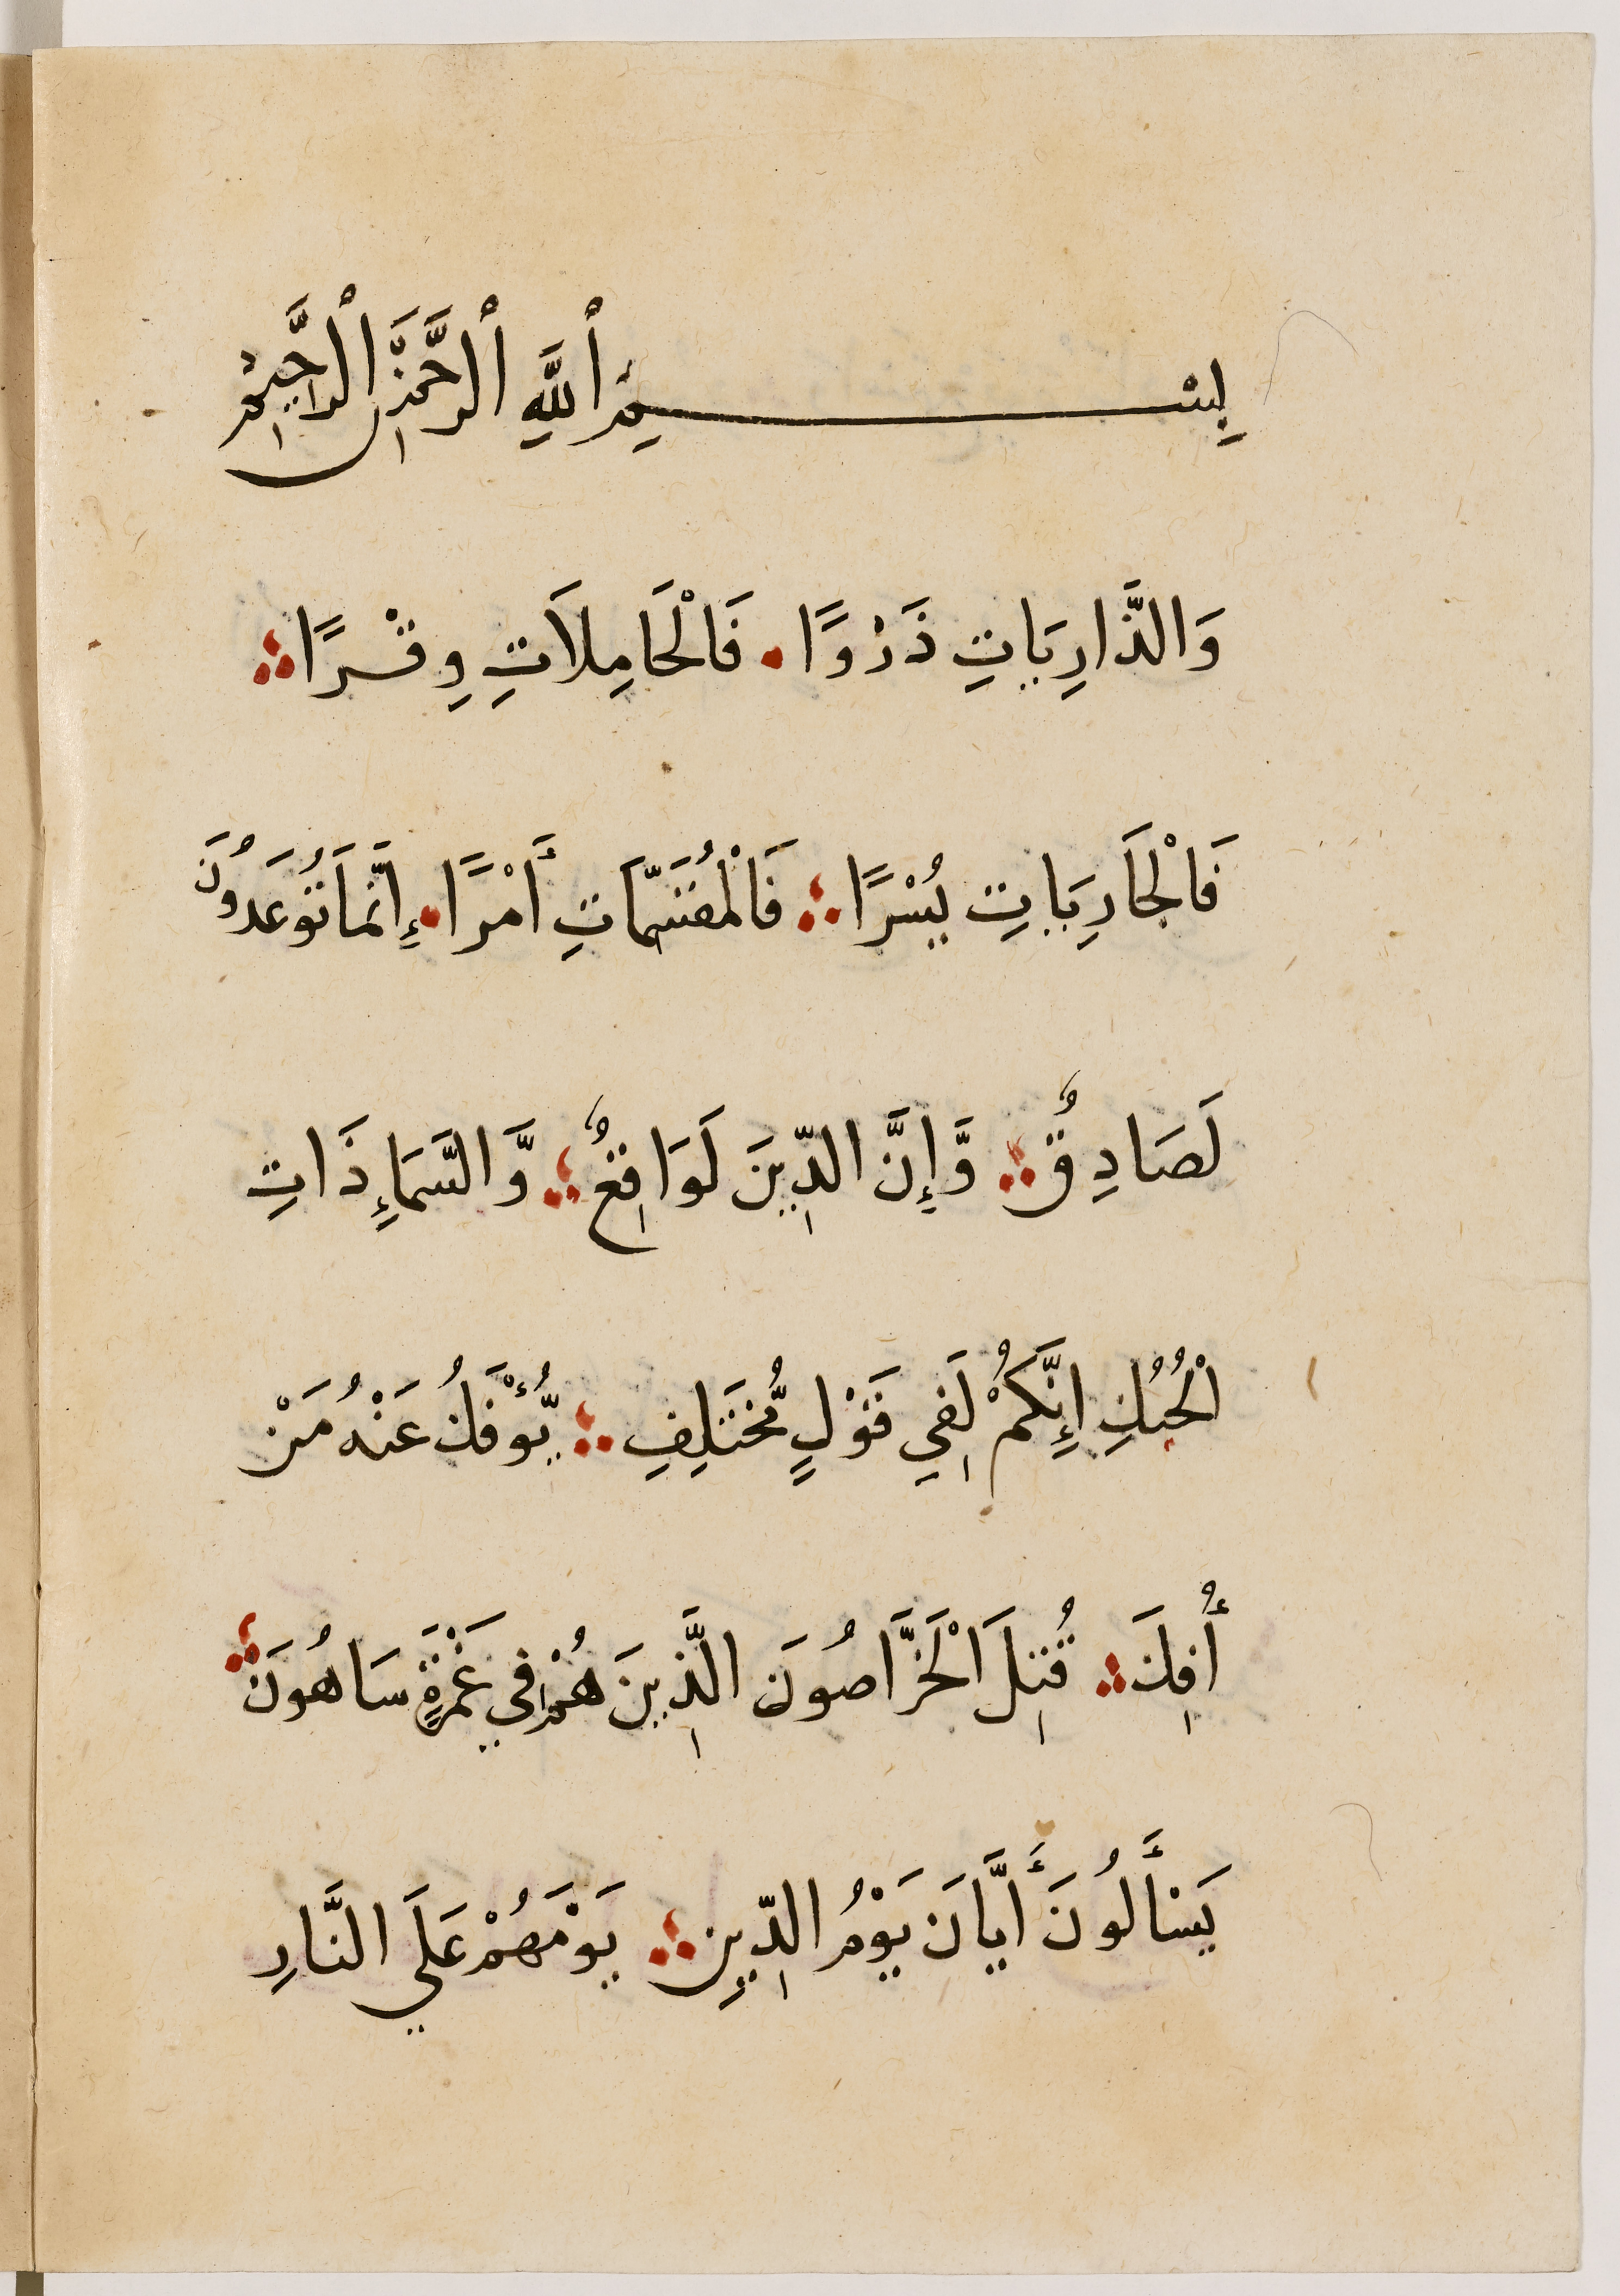 بِسْمِ ٱللَّهِ ٱلرَّحْمَٰنِ ٱلرَّحِيمِ
وَالذَّارِيَاتِ ذَرْوًا فَالْحَامِلَاتِ وِقْرًا
فَالْجَارِيَاتِ يُسْرًا فَالْمُقَسِّمَاتِ أَمْرًا إِنَّمَا تُوعَدُونَ
لَصَادِقٌ وَّإِنَّ الدِّينَ لَوَاقِعٌ وَّالسَّمَاءِ ذَاتِ
الْحُبُكِ إِنَّكُمْ لَفِي قَوْلٍ مُّخْتَلِفٍ يُّؤْفَكُ عَنْهُ مَنْ
أُفِكَ قُتِلَ الْخَرَّاصُونَ الَّذِينَ هُمْ فِي غَمْرَةٍ سَاهُونَ
يَسْأَلُونَ أَيَّانَ يَوْمُ الدِّينِ يَوْمَهُمْ عَلَي النَّارِ